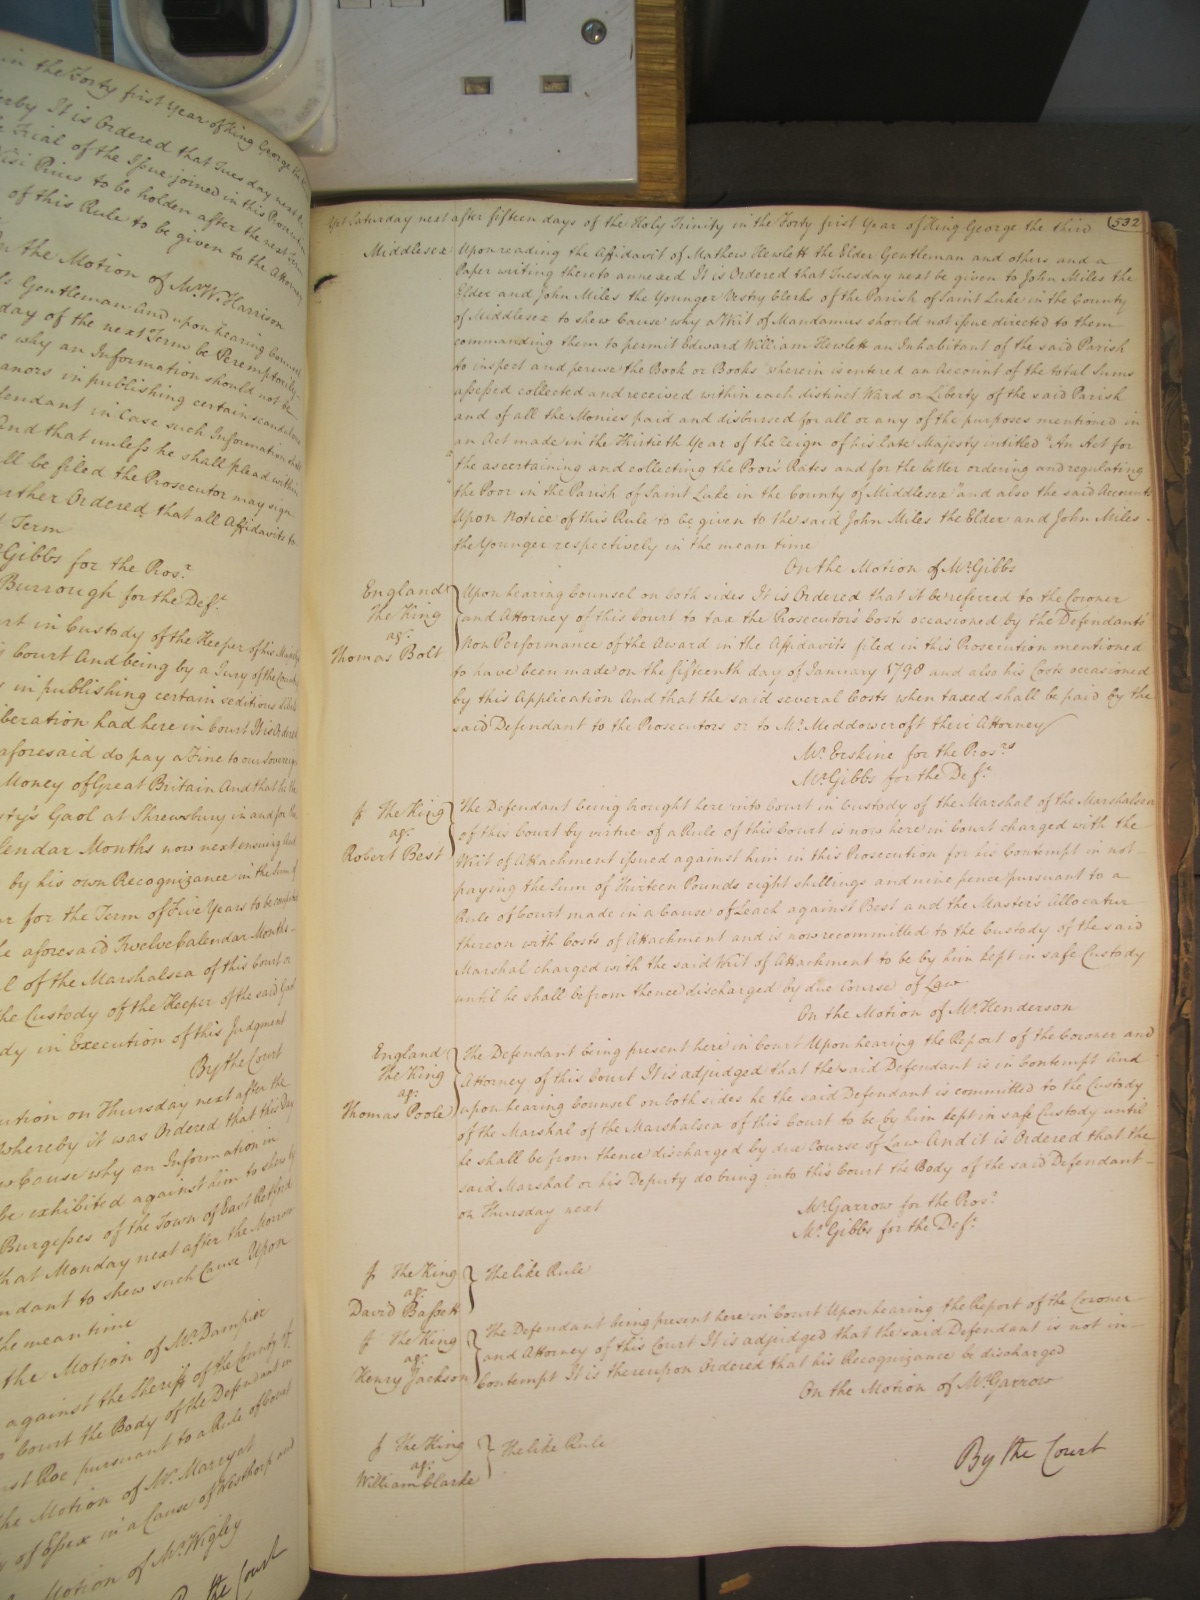 in the Forty first Year of King George the
It is Ordered that Tuesday next
Trial of the Issue joined in this Prosecution
Nisi Prius to be holden after the next Term
of this Rule to be given to the Attorney
On the Motion of Mr. W. Harrison
Gentleman And upon hearing Counsel
day of the next Term be Peremptorily
why an Information should not be
in publishing certain scandalous
Defendant in Case such Information shall
And that unless he shall plead within
be filed the Prosecutor may sign
further Ordered that all Affidavits to
Term
Gibbs for the Prosr.
Burrough for the Deft.
in Custody of the Keeper of his Majestys
Court And being by a Jury of the County
in publishing certain seditious
had here in Court It is Ordered
aforesaid do pay a Fine to our Sovereign
Money of Great Britain And that he
Gaol at Shrewsbury in and for the
Calendar Months now next ensuing And
by his own Recognizance in the Sum of
for the Term of Five Years to be computed
aforesaid Twelve Calendar Months
of the Marshalsea of this Court
the Custody of the Keeper of the said Gaol
in Execution of this Judgment
By the Court
on Thursday next after the
whereby it was Ordered that this Day
Cause why an Information in
be exhibited against him to shew by
Burgesses of the Town of East Retford
that Monday next after the Morrow
to shew such Cause Upon
the mean time
the Motion of Mr. Dampier
against the Sheriff of the County of
Court the Body of the Defendant in
Roe pursuant to a Rule of Court
the Motion of Mr. Maryat
of Essex in a Cause of Westhorp and
Motion of Mr. Wigley
By the Court
Yet Saturday next after fifteen days of the Holy Trinity in the Forty first Year of King George the third
532
Middlesex Upon reading the Affidavit of Mathew Hewlett the Elder Gentleman and others and a
Paper writing thereto annexed It is Ordered that Tuesday next be given to John Miles the
Elder and John Miles the Younger Vestry Clerks of the Parish of Saint Luke in the County
of Middlesex to shew Cause why a Writ of Mandamus should not issue directed to them
commanding them to permit Edward William Hewlett an Inhabitant of the said Parish
to inspect and peruse the Book or Books wherein is entered an Account of the total Sums
assessed collected and received within each distinct Ward or Liberty of the said Parish
and of all the Monies paid and disbursed for all or any of the purposes mentioned in
an Act made in the Thirtieth Year of the reign of his late Majesty intitled "An Act for
the ascertaining and collecting the Poor's Rates and for the better ordering and regulating
the Poor in the Parish of Saint Luke in the County of Middlesex" and also the said Accounts
Upon Notice of this Rule to be given to the said John Miles the Elder and John Miles
the Younger respectively in the mean time
On the Motion of Mr. Gibbs
England
The King
agt.
Thomas Bolt
Upon hearing Counsel on both sides It is Ordered that it be referred to the Coroner
and Attorney of this Court to tax the Prosecutors Costs occasioned by the Defendants
Non Performance of the Award in the Affidavits filed in this Prosecution mentioned
to have been made on the fifteenth day of January 1798 and also his Costs occasioned
by this Application And that the said several Costs when taxed shall be paid by the
said Defendant to the Prosecutors or to Mr. Meddowcroft their Attorney
Mr. Erskine for the Prosrs.
Mr. Gibbs for the Deft.
The King
agt.
Robert Best
The Defendant being brought here into Court in Custody of the Marshal of the Marshalsea
of this Court by virtue of a Rule of this Court is now here in Court charged with the
Writ of Attachment issued against him in this Prosecution for his Contempt in not
paying the Sum of Thirteen Pounds eight shillings and nine pence pursuant to a
Rule of Court made in a Cause of Leach against Best and the Master's Allocatur
thereon with Costs of Attachment and is now recommitted to the Custody of the said
Marshal charged with the said Writ of Attachment to be by him kept in safe Custody
until he shall be from thence discharged by due Course of Law
On the Motion of Mr. Henderson
England
The King
agt.
Thomas Poole
The Defendant being present here in Court Upon hearing the Report of the Coroner and
Attorney of this Court It is adjudged that the said Defendant is in Contempt And
upon hearing Counsel on both sides he the said Defendant is committed to the Custody
of the Marshal of the Marshalsea of this Court to be by him kept in safe Custody until
he shall be from thence discharged by due Course of Law And it is Ordered that the
said Marshal or his Deputy do bring into this Court the Body of the said Defendant
on Thursday next
Mr. Garrow for the Prosr.
Mr. Gibbs for the Deft.
The King
agt.
David Bassett
The like Rule
The King
agt.
Henry Jackson
The Defendant being present here in Court Upon hearing the Report of the Coroner
and Attorney of this Court It is adjudged that the said Defendant is not in
Contempt It is thereupon Ordered that his Recognizance be discharged
On the Motion of Mr. Garrow
The King
agt.
William Clarke
The like Rule
By the Court